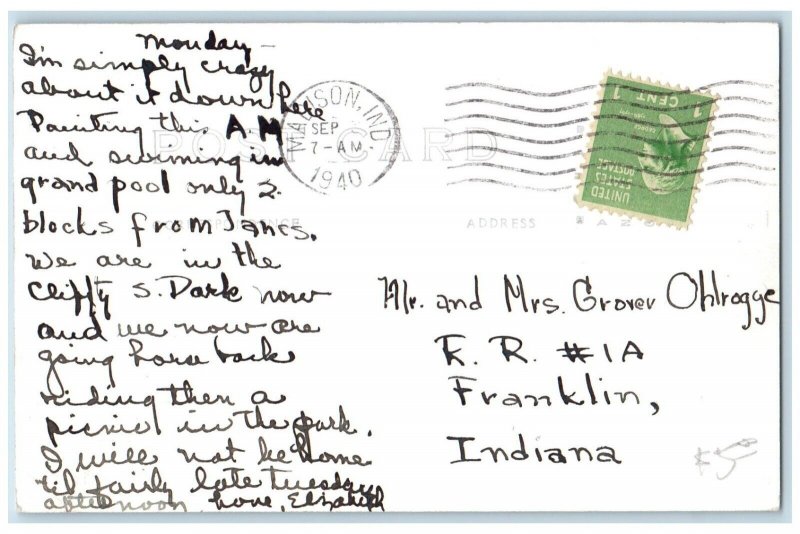 Monday –
I'm simply crazy
about it down here
Painting this A.M
and swiming in
grand pool only 2
blocks from Janes.
We are in the
Clifty S. Park now
and we now are
going horse back
riding then a
picnic in the park.
I will not be home
'til fairly late tuesday
afternoon Love, Elizabeth
MADISON, IND
SEP
7–AM
1940
POST CARD
ADDRESS
1 CENT 1
UNITED
STATES
POSTAGE
Mr. and Mrs. Grover Ohlrogge
R. R. #1A
Franklin,
Indiana
$5